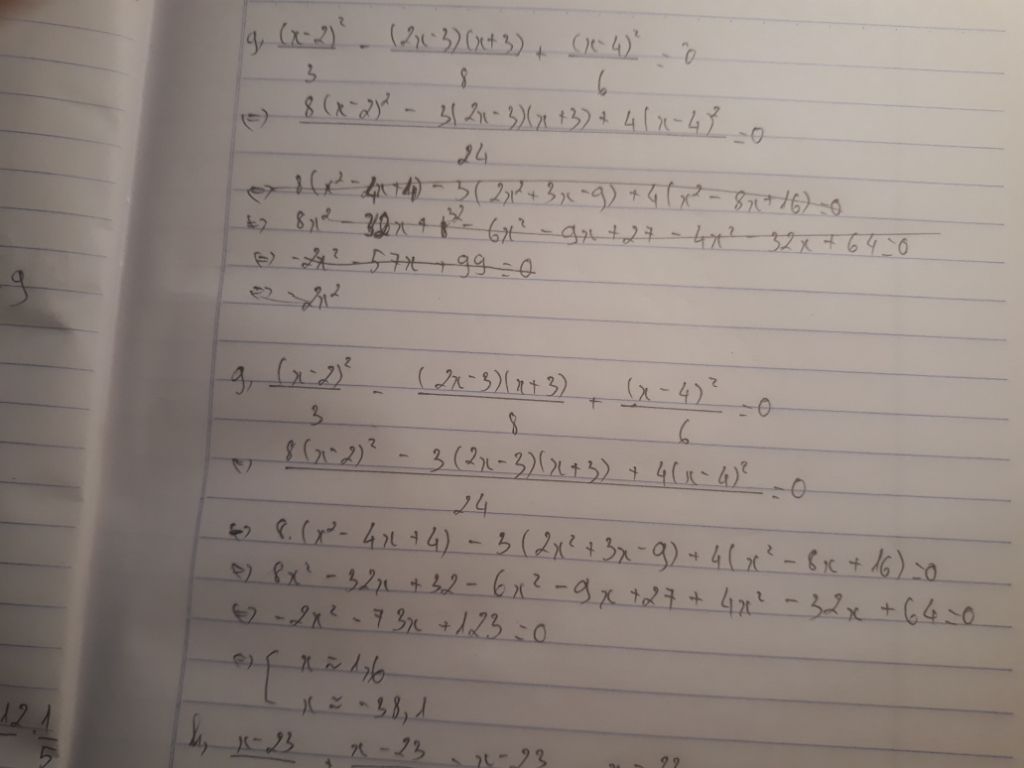 g, (x-2)²/3 - (2x-3)(x+3)/8 + (x-4)²/6 = 0
<=> 8(x-2)² - 3(2x-3)(x+3) + 4(x-4)²/24 = 0
<=> 8(x² - 4x+4) - 3(2x²+3x-9) + 4(x² - 8x+16)=0
<=> 8x² - 32x + 32 - 6x² - 9x + 27 - 4x² - 32x + 64=0
<=> -2x² - 57x + 99 = 0
<=> -2x²
g
g, (x-2)²/3 - (2x-3)(x+3)/8 + (x-4)²/6 = 0
<=> 8(x-2)² - 3(2x-3)(x+3) + 4(x-4)²/24 = 0
<=> 8.(x² - 4x + 4) - 3(2x²+3x-9) + 4(x² - 8x + 16)=0
<=> 8x² - 32x + 32 - 6x² - 9x + 27 + 4x² - 32x + 64=0
<=> -2x² - 73x + 123 = 0
<=> [ x ≈ 1,6
x ≈ -38,1
12.1/5
h, x-23 + x-23 = x-23